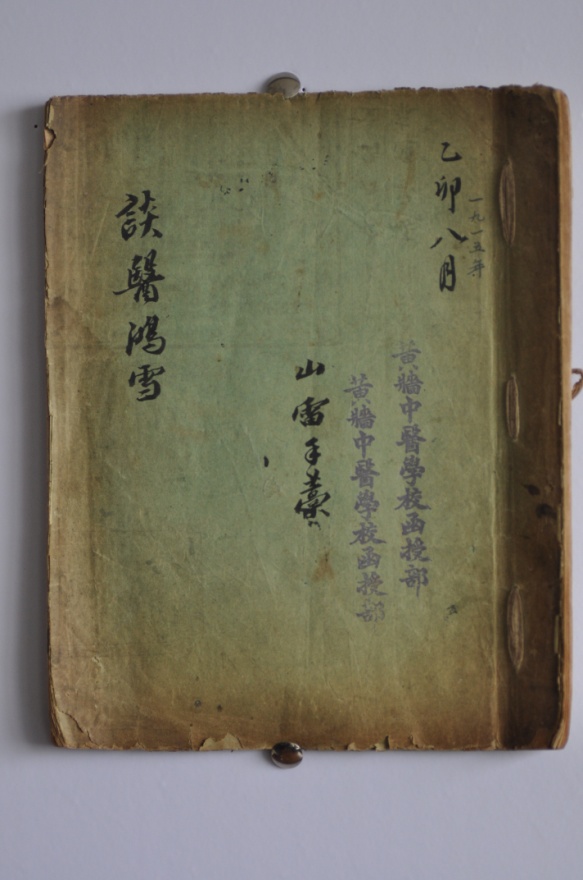 乙卯八月
一九一五年
黃牆中醫學校函授部
黃牆中醫學校函授部
山雷手稾
談醫鴻雪